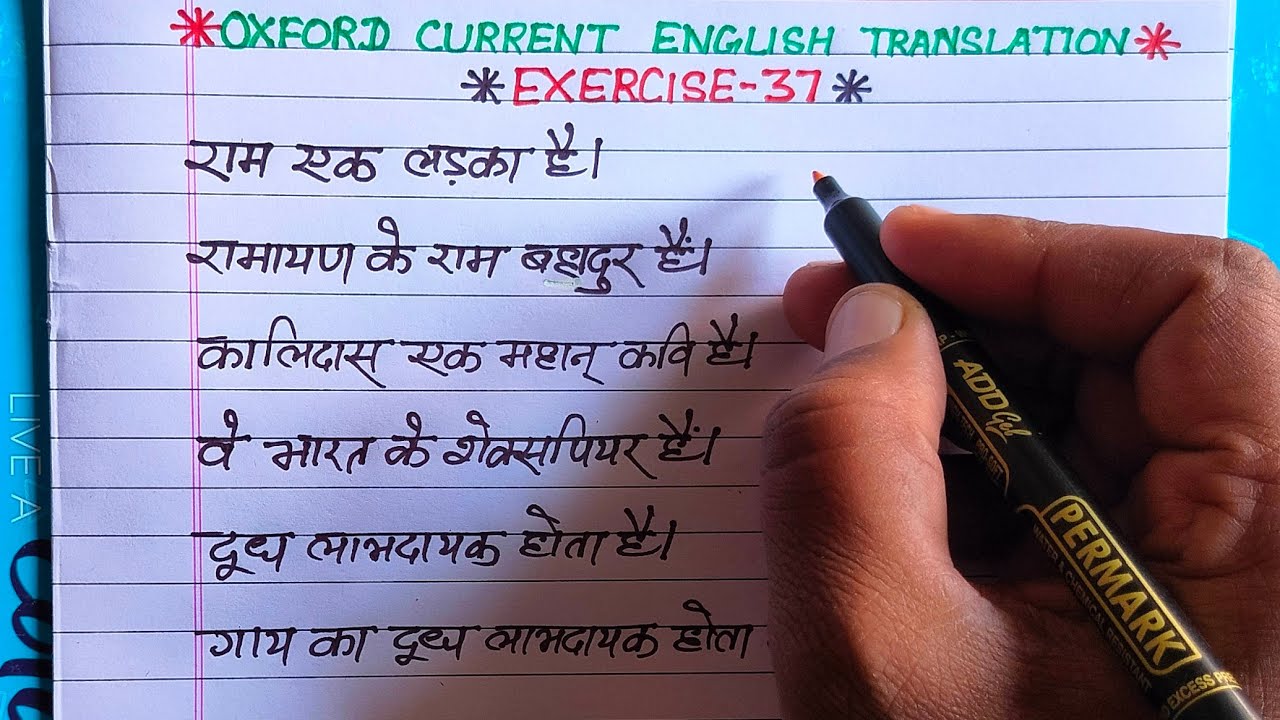 *OXFORD CURRENT ENGLISH TRANSLATION*
*EXERCISE-37*
राम एक लड़का है।
रामायण के राम बहादुर हैं।
कालिदास एक महान् कवि है।
वे भारत के शेक्सपियर हैं।
दूध लाभदायक होता है।
गाय का दूध लाभदायक होता
ADD Gel
PERMARK
LIVE A